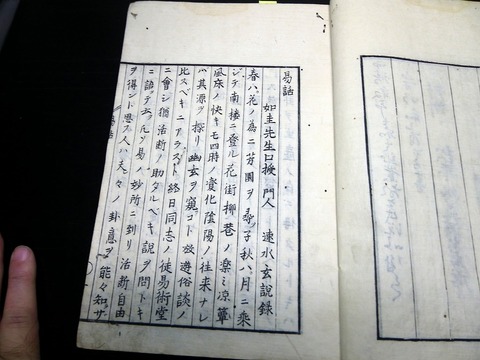 易話
如圭先生口授 門人 速水玄説録
春ハ花ノ為ニ芳園ヲ尋子秋ハ月ニ乗
ジテ南樓ニ登ル花街柳巷ノ楽ミ凉簟
風床ノ快キモ四時ノ変化陰陽ノ往来ナレ
ハ其源ヲ探リ幽玄ヲ窺コト放遊俗談ノ
比スベキニアラズト終日同志ノ徒易術堂
ニ會シ猶活断ノ助タルベキ説ヲ問トキ
ニ語テ云凡ソ易ノ妙所ニ到リ活断自由
ヲ得ント思フ人ハ夫々ノ卦意ヲ能々知ザ